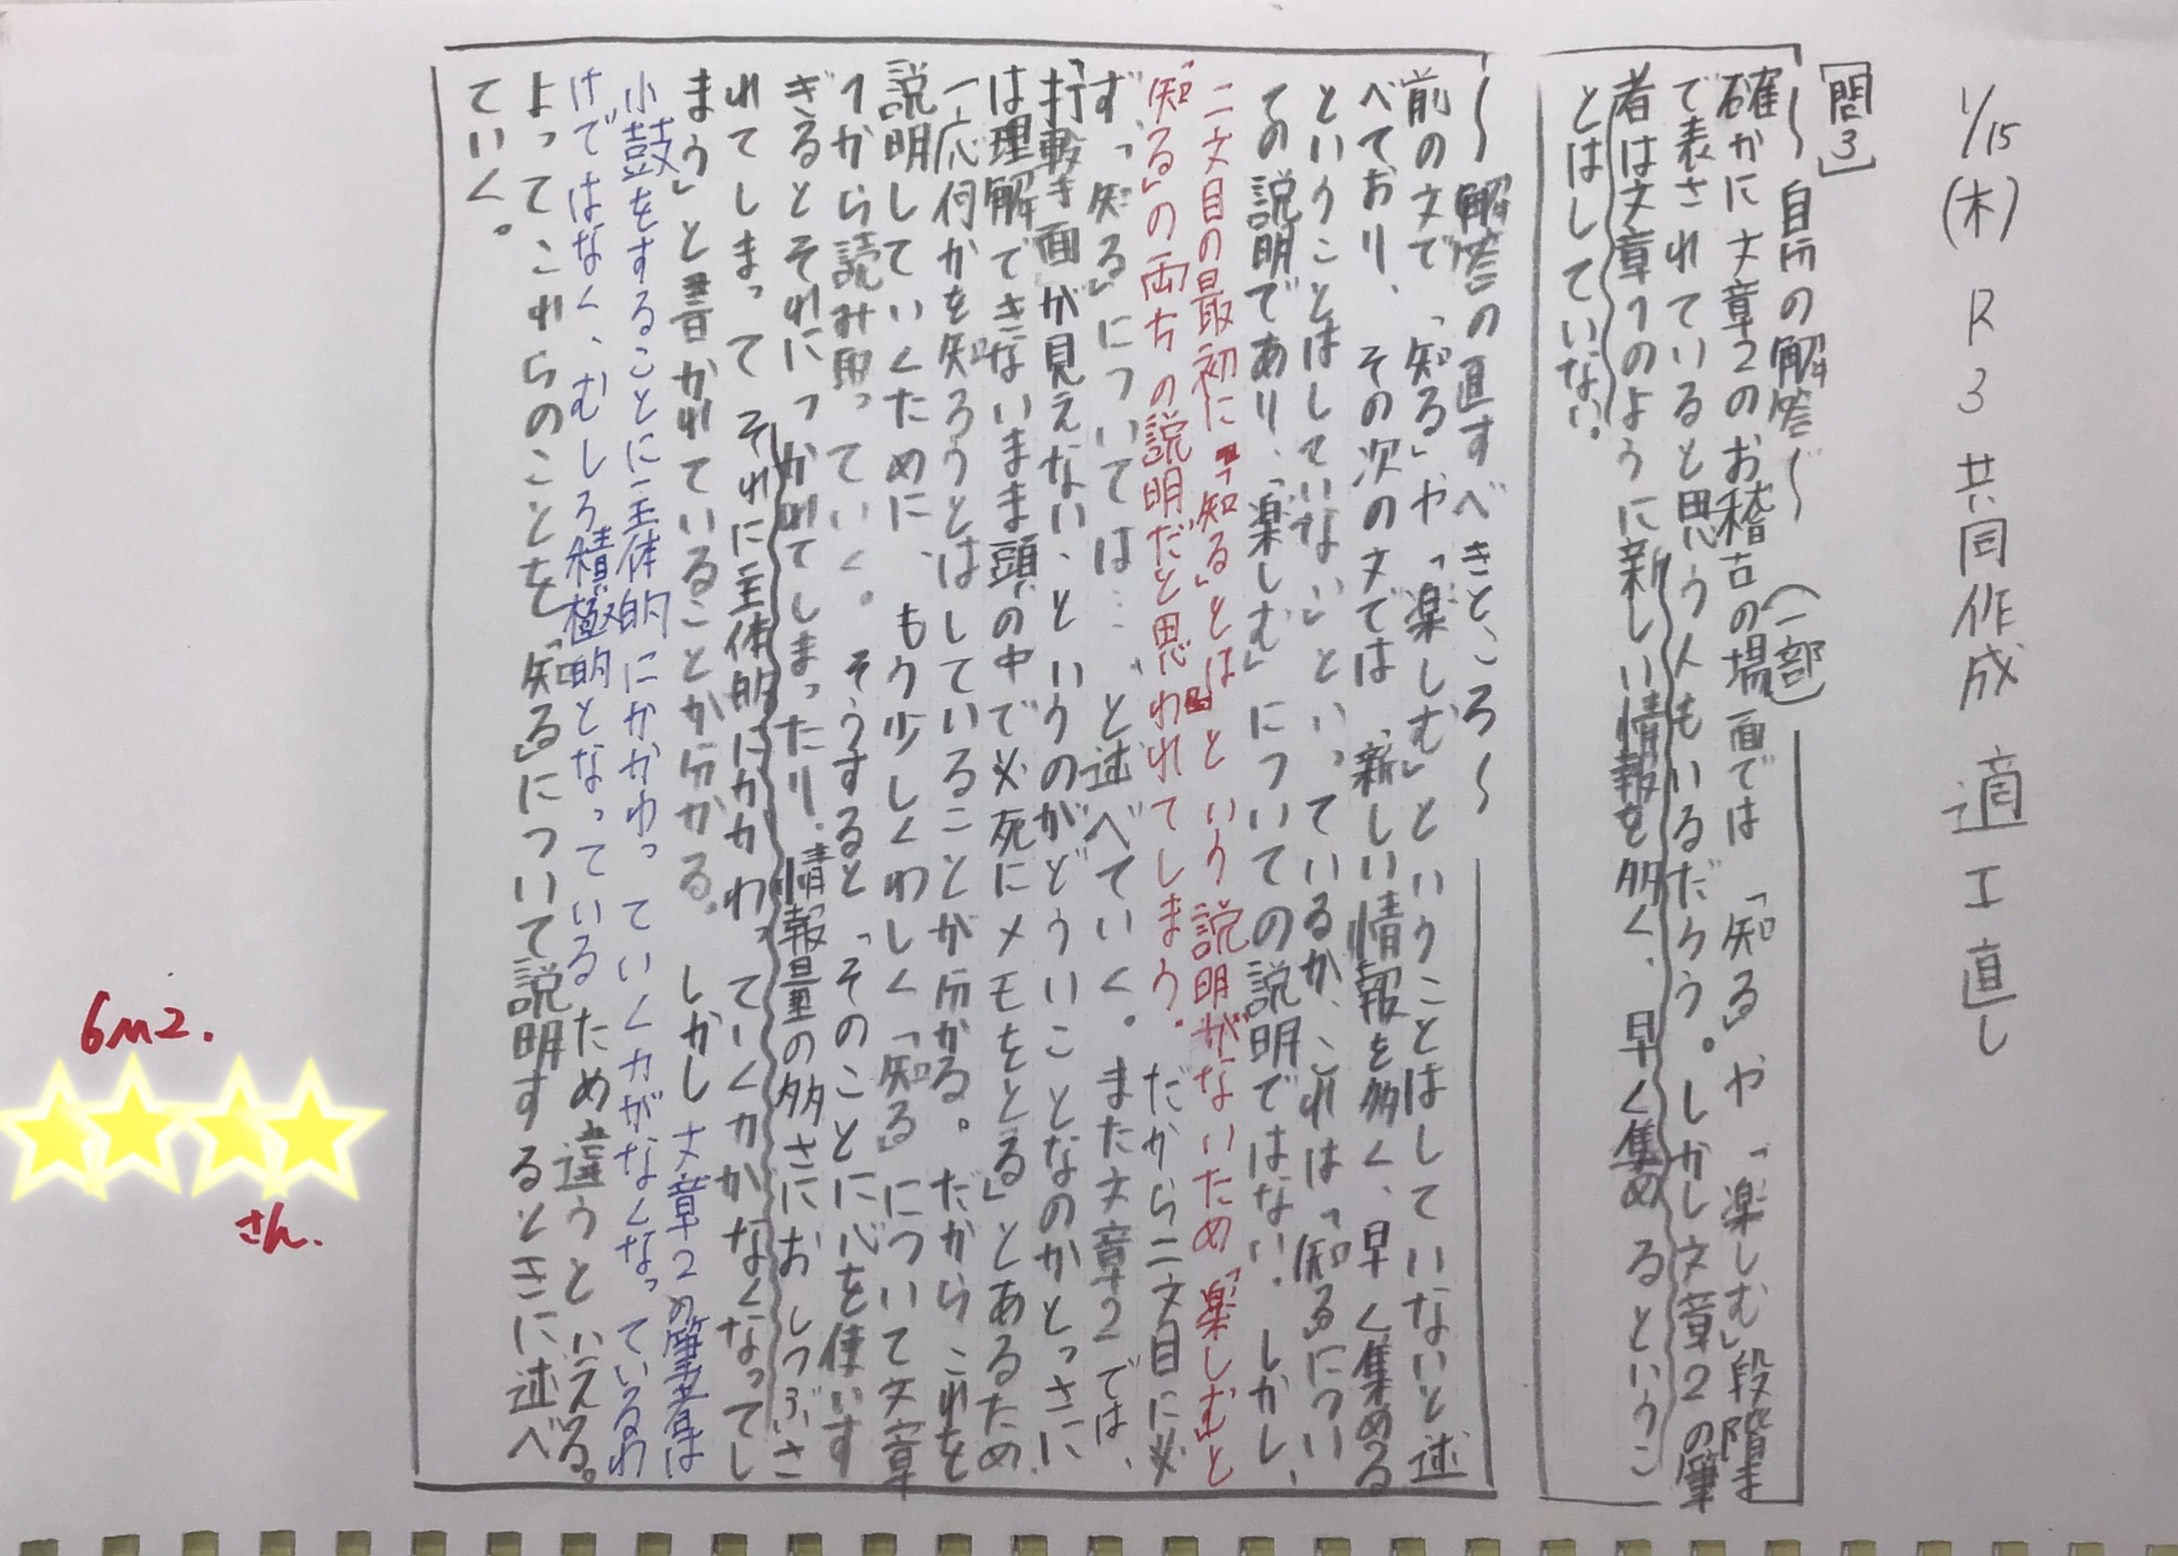 1/15(木) R3 共同作成 適エ直し
[問3]
〜自分の解答〜(一部)
確かに文章2のお稽古の場面では「知る」や「楽しむ」段階ま
で表されていると思う人もいるだろう。しかし文章2の筆
者は文章1のように新しい情報を多く、早く集めるというこ
とはしていない。
〜解答の直すべきところ〜
前の文で「知る」や「楽しむ」ということはしていないと述
べており、その次の文では「新しい情報を多く、早く集める
ということはしていない」といっているが、これは「知る」につい
ての説明であり、「楽しむ」についての説明ではない。しかし、
二文目の最初に「知る」とはという説明がないため「楽しむ」と
「知る」の両方の説明だと思われてしまう。だから二文目に必
ず、「知る」については…、と述べていく。また文章2では、
「打撃き面が見えない、というのがどういことなのかとっさに
は理解できないまま頭の中で必死にメモをとる」とあるため
一応何かを知ろうとはしていることが分かる。だからこれを
説明していくために、もう少しくわしく「知る」について文章
1から読み取っていく。そうすると「そのことに心を使いす
ぎるとそれにつかれてしまったり、情報量の多さにおしつぶさ
れてしまってそれに主体的にかかわっていく力がなくなってし
まう」と書かれていることから分かる。しかし文章2の筆者は
小鼓をすることに主体的にかかわっていく力がなくなっているわ
けではなく、むしろ積極的となっているため違うといえる。
よってこれらのことを「知る」について説明するときに述べ
ていく。
6M2.
さん.